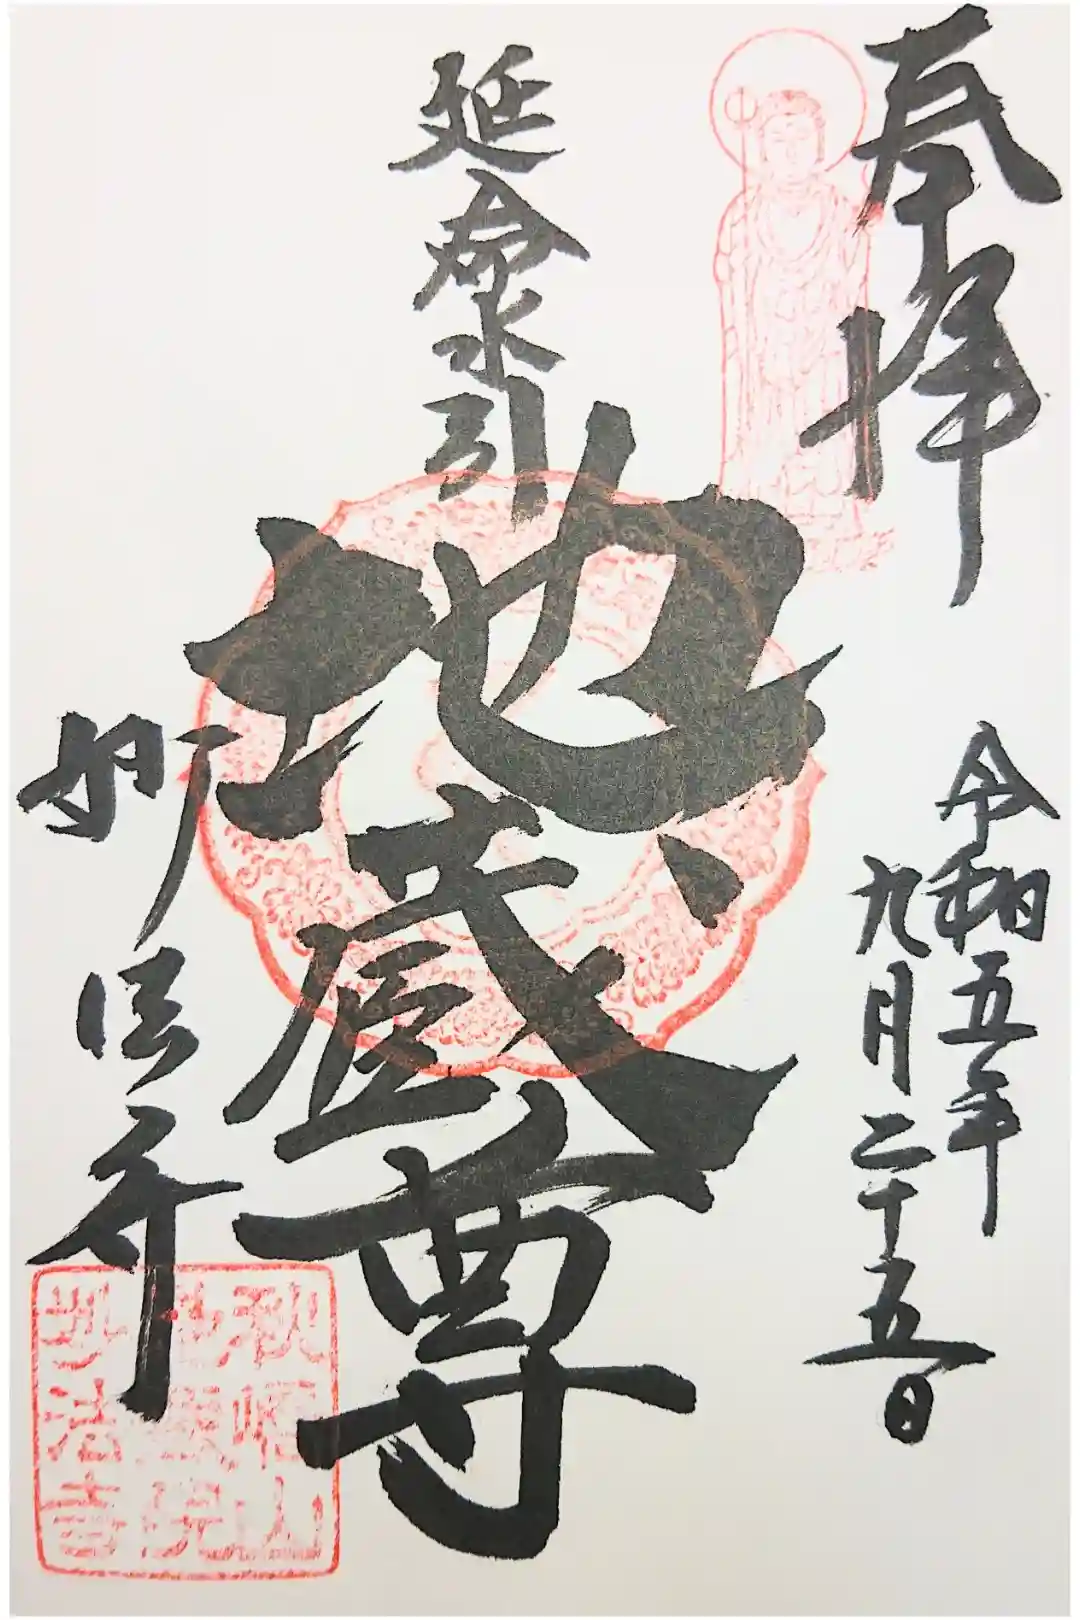 奉拝
令和五年
九月二十五日
延命水引
地蔵尊
法寺